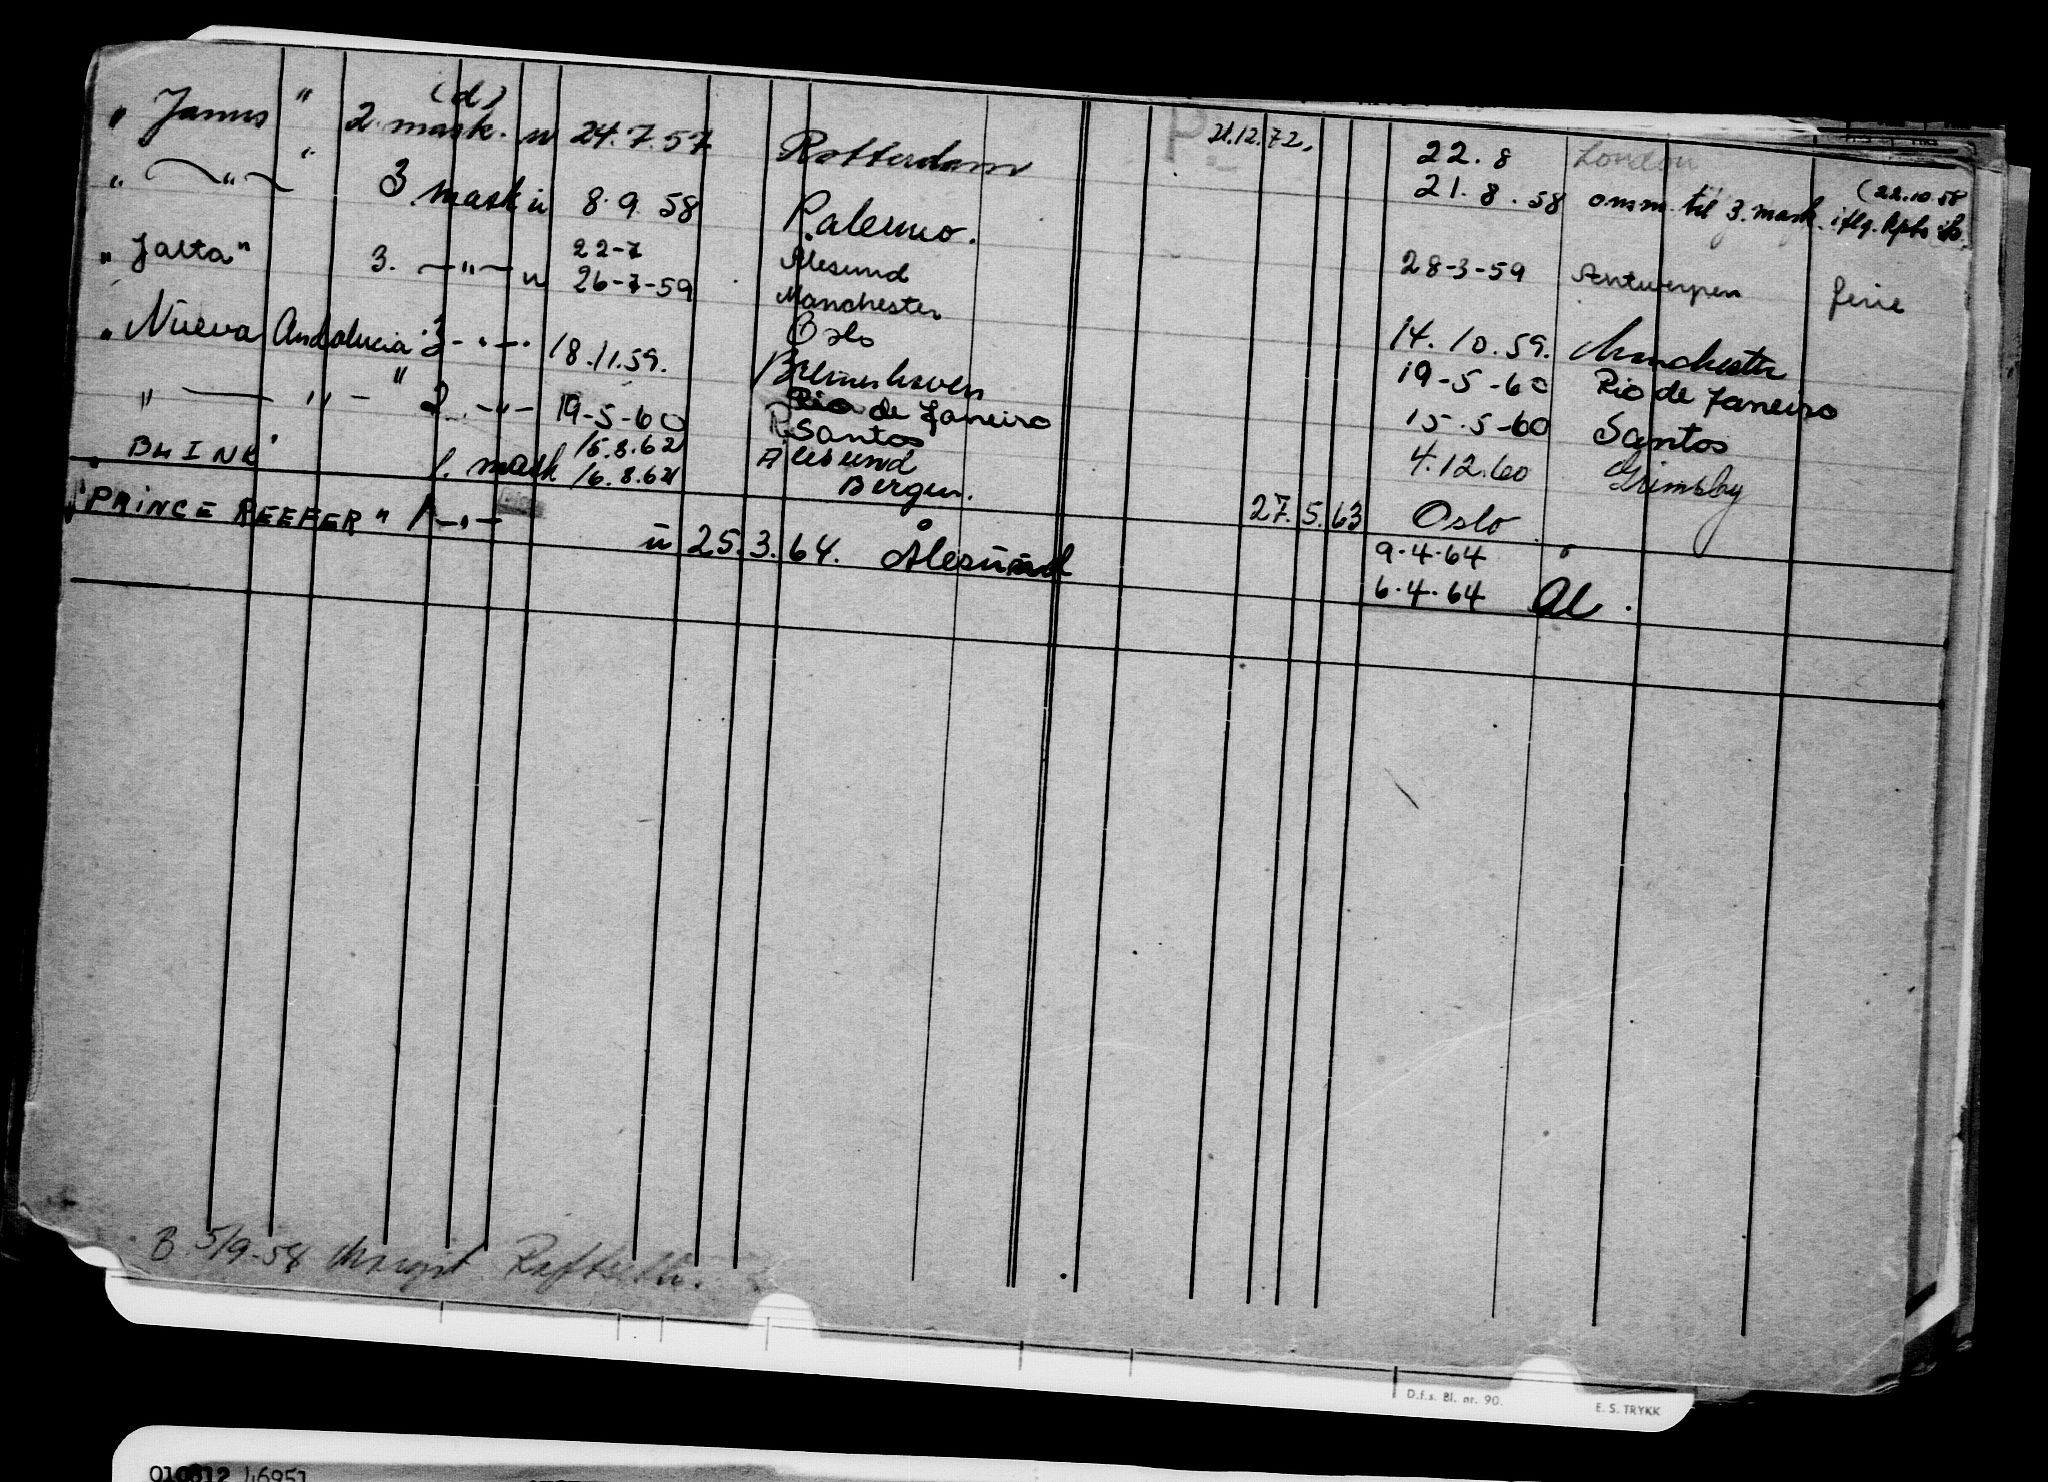 (d)
" Janus " 2. mask. u 24.7.57 Rotterdam 21.12.72. 22.8 London
" —"— " 3. mask u 8.9.58 Palermo. 21.8.58 omm. til 3. mask. (22.10.58
" Jalta" 3. —"— u 22-7 Ålesund 28-3-59 Antwerpen ferie
26-7-59 Manchester
" Nueva Andalucia 3 - " - 18.11.59. Oslo 14.10.59. Manchester
Bremerhaven 19-5-60 Rio de Janeiro
" — " — " 2. -"- 19-5-60 Rio de Janeiro 15.5-60 Santos
15.8.62 Santos
" BLINK" 1. mask 16.8.62 Ålesund 4.12.60 Grimsby
Bergen.
"PRINCE REEFER" 1 -"- 27.5.63 Oslo
u 25.3.64. Ålesund 9.4.64 "
6.4.64 Ål.
B 5/9-58 Margit
D.f.s. Bl. nr. 90.
E. S. TRYKK
010812 46951